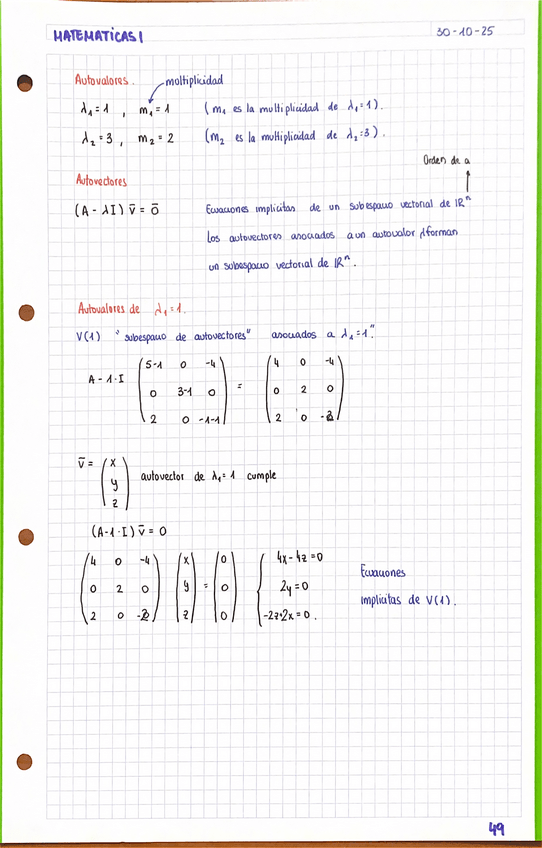 MATEMATICAS I
30-10-25
Autovalores.
multiplicidad
λ₁=1 , m₁=1 (m₁ es la multiplicidad de λ₁=1).
λ₂=3 , m₂=2 (m₂ es la multiplicidad de λ₂=3).
Orden de a
Autovectores
(A - λI) v̄ = ō Ecuaciones implícitas de un subespacio vectorial de ℝⁿ
Los autovectores asociados a un autovalor λ forman
un subespacio vectorial de ℝⁿ.
Autovalores de λ₁=1.
V(1) "subespacio de autovectores" asociados a λ₁=1."
5-1 0 -4 4 0 -4
A-1·I 0 3-1 0 = 0 2 0
2 0 -1-1 2 0 -2
v̄ = x
y autovector de λ₁=1 cumple
z
(A-1·I) v̄ = 0
4 0 -4 x 0 4x-4z=0
0 2 0 y = 0 2y=0 Ecuaciones
2 0 -2 z 0 -2z+2x=0. implícitas de V(1).
49